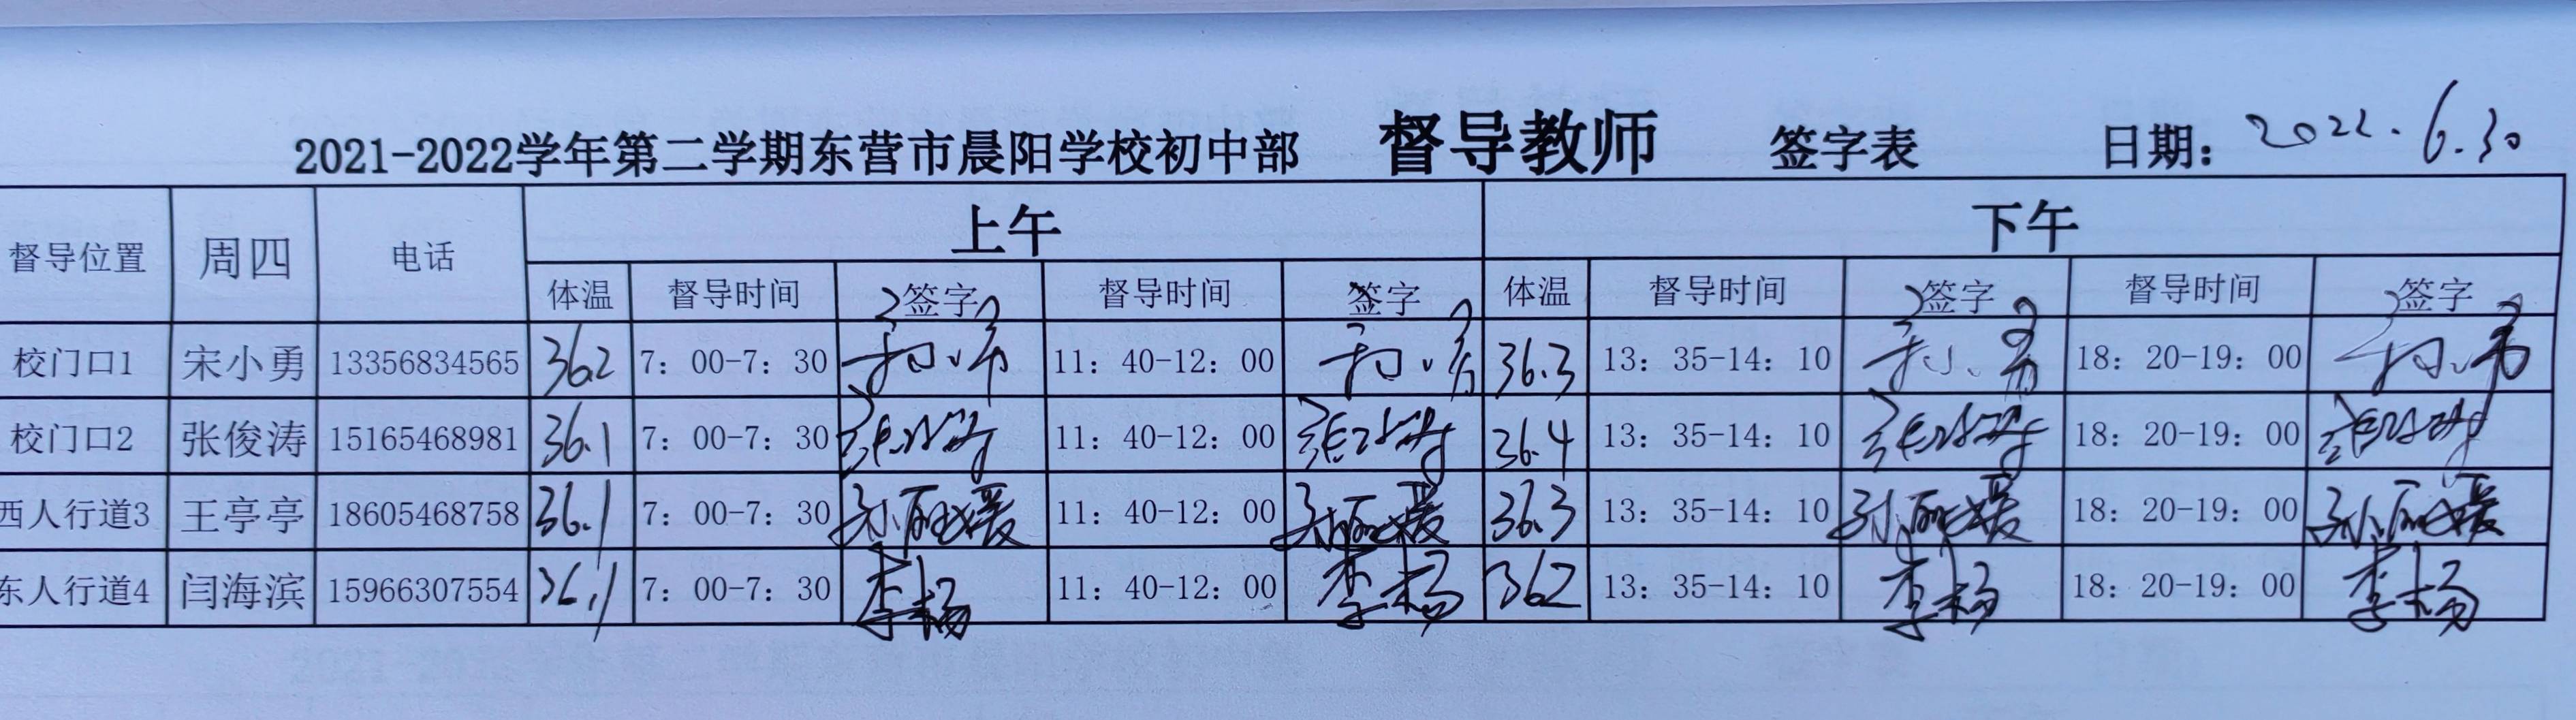 2021-2022学年第二学期东营市晨阳学校初中部 督导教师 签字表 日期: 2022.6.30
督导位置 周四 电话 上午 下午
体温 督导时间 签字 督导时间 签字 体温 督导时间 签字 督导时间 签字
校门口1 宋小勇 13356834565 36.2 7：00-7：30 11：40-12：00 36.3 13：35-14：10 18：20-19：00
校门口2 张俊涛 15165468981 36.1 7：00-7：30 张俊涛 11：40-12：00 张俊涛 36.4 13：35-14：10 张俊涛 18：20-19：00 张俊涛
西人行道3 王亭亭 18605468758 36.1 7：00-7：30 孙丽媛 11：40-12：00 孙丽媛 36.3 13：35-14：10 孙丽媛 18：20-19：00 孙丽媛
东人行道4 闫海滨 15966307554 36.1 7：00-7：30 李杨 11：40-12：00 李杨 362 13：35-14：10 李杨 18：20-19：00 李杨